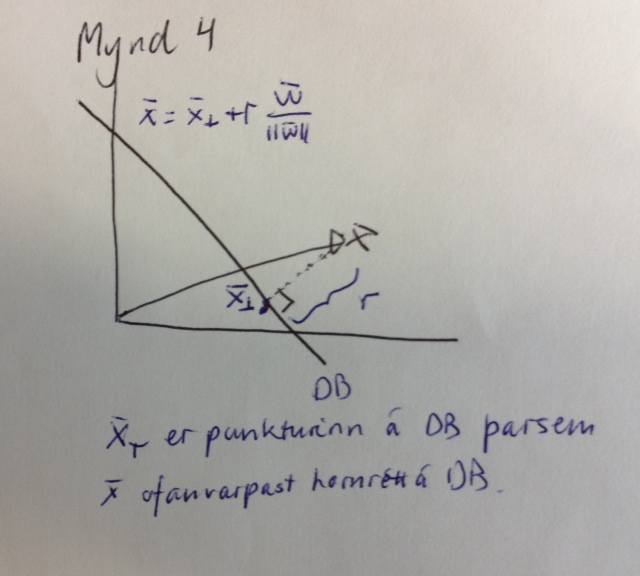 Mynd 4
x̄ = x̄⊥ + r w̄ / ||w̄||
x̄
x̄⊥
r
DB
x̄⊤ er punkturinn á DB þarsem
x̄ ofanvarpast hornrétt á DB.